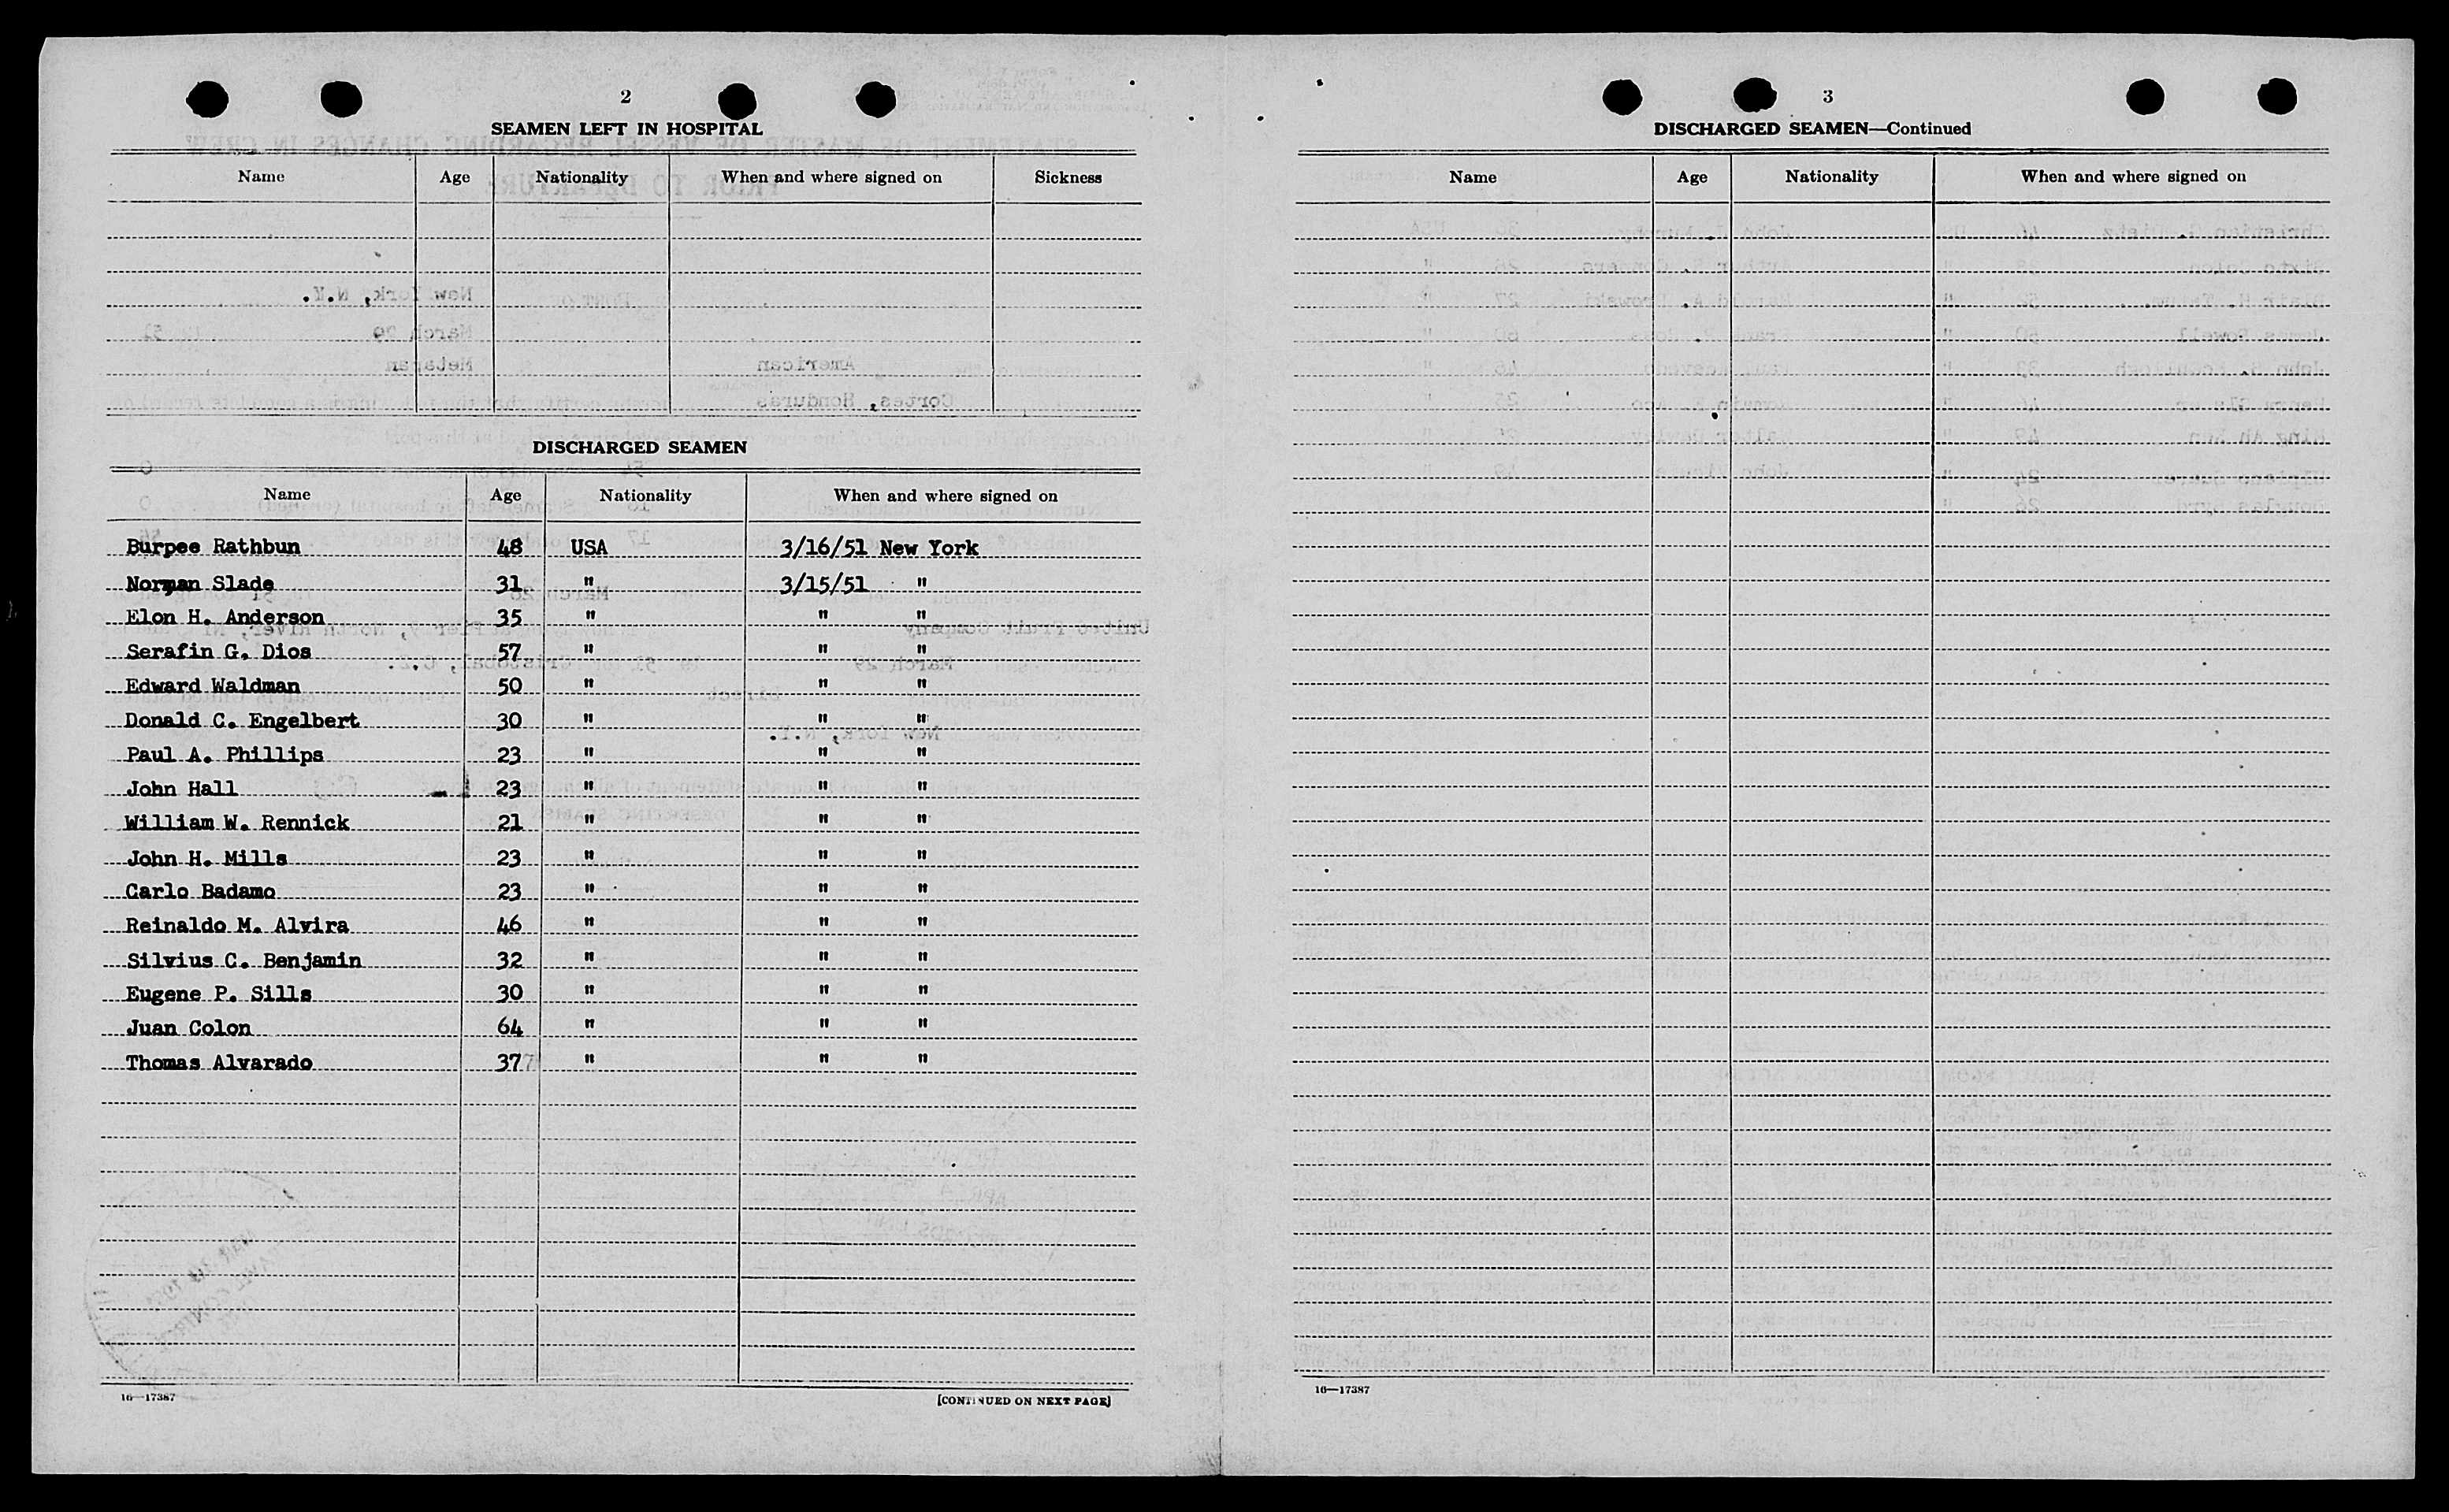 2
SEAMEN LEFT IN HOSPITAL
Name Age Nationality When and where signed on Sickness
DISCHARGED SEAMEN
Name Age Nationality When and where signed on
Burpee Rathbun 48 USA 3/16/51 New York
Norman Slade 31 " 3/15/51 "
Elon H. Anderson 35 " " "
Serafin G. Dios 57 " " "
Edward Waldman 50 " " "
Donald C. Engelbert 30 " " "
Paul A. Phillips 23 " " "
John Hall 23 " " "
William W. Rennick 21 " " "
John H. Mills 23 " " "
Carlo Badamo 23 " " "
Reinaldo M. Alvira 46 " " "
Silvius C. Benjamin 32 " " "
Eugene P. Sills 30 " " "
Juan Colon 64 " " "
Thomas Alvarado 37 " " "
16—17387
[CONTINUED ON NEXT PAGE]
3
DISCHARGED SEAMEN—Continued
Name Age Nationality When and where signed on
16—17387